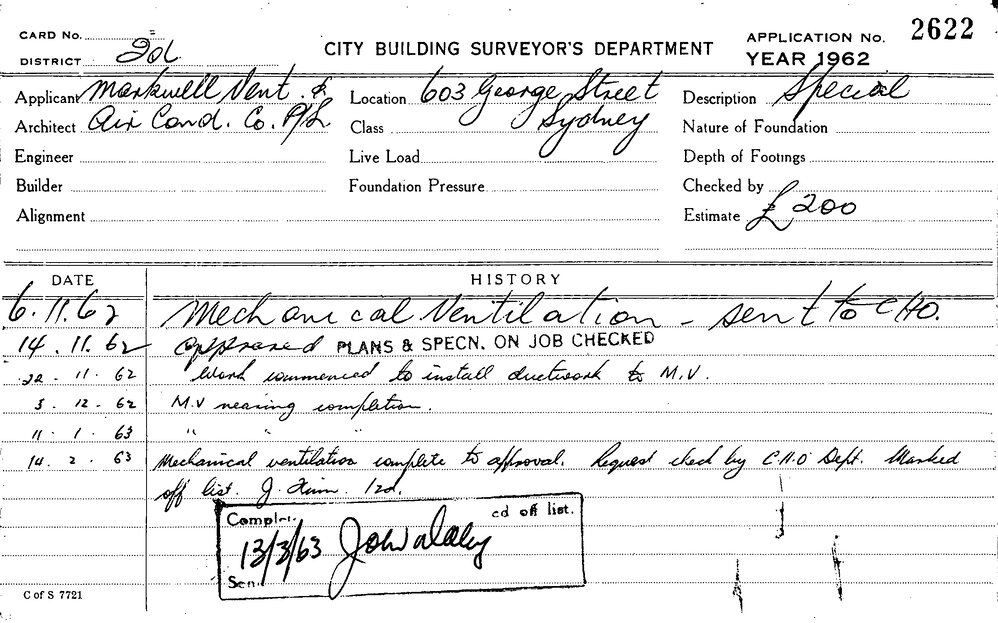 CARD No.
2622
CITY BUILDING SURVEYOR'S DEPARTMENT
APPLICATION No.
DISTRICT 2d
YEAR 1962
Applicant Markwell Vent. & Location 603 George Street Description Special
Architect Air Cond. Co. P/L Class Sydney Nature of Foundation
Engineer Live Load Depth of Footings
Builder Foundation Pressure Checked by
Alignment Estimate £200
DATE HISTORY
6.11.62 Mechanical Ventilation - sent to CHO.
14.11.62 approved PLANS & SPECN. ON JOB CHECKED
22.11.62 Work commenced to install ductwork to M.V.
3.12.62 M.V nearing completion.
11.1.63 " " "
14.2.63 Mechanical ventilation complete to approval. Request check by C.H.O Dept. Marked
off list. J. 12d.
ed off list.
13/3/63
Sen.
C of S 7721